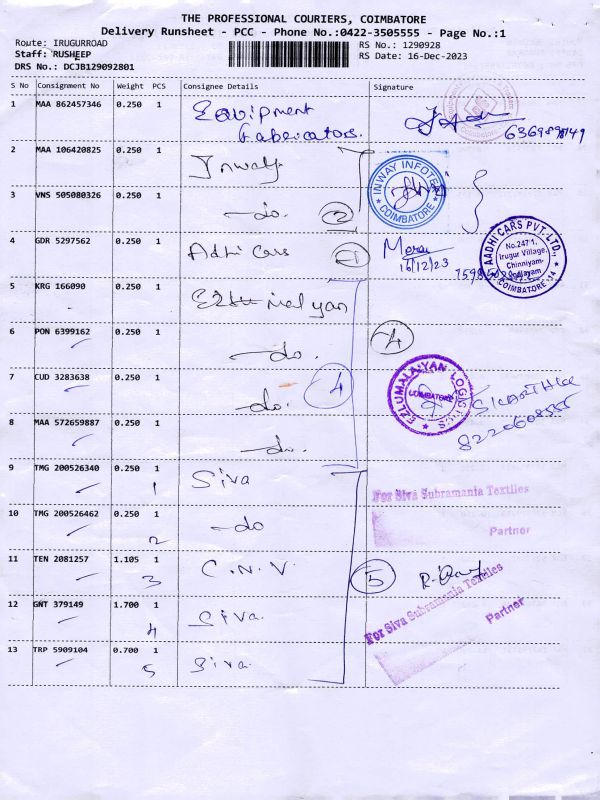 THE PROFESSIONAL COURIERS, COIMBATORE
Delivery Runsheet - PCC - Phone No.:0422-3505555 - Page No.:1
Route: IRUGURROAD
RS No.: 1290928
Staff: RUSHEEP
RS Date: 16-Dec-2023
DRS No.: DCJB129092801
S No Consignment No Weight PCS Consignee Details Signature
1 MAA 862457346 0.250 1 Equipment
Fabricators.
2 MAA 106420825 0.250 1 Inway
INWAY INFOTECH
COIMBATORE
3 VNS 505080326 0.250 1 -do. 2
4 GDR 5297562 0.250 1 Adhi Cars 1
16/12/23
AADHI CARS PVT.LTD.,
No.247/1,
Irugur Village
Chinniyam-
palayam
COIMBATORE 14
5 KRG 166090 0.250 1
6 PON 6399162 0.250 1 -do. 4
7 CUD 3283638 0.250 1 -do. 4
EZLUMALAIYAN LOGISTICS
COIMBATORE
8220608555
8 MAA 572659887 0.250 1 -do.
9 TMG 200526340 0.250 1 Siva
1
For Siva Subramania Textiles
10 TMG 200526462 0.250 1 -do
2
Partner
11 TEN 2081257 1.105 1 C.N.V.
3 5
For Siva Subramania Textiles
12 GNT 379149 1.700 1 Siva.
4
Partner
13 TRP 5909104 0.700 1 Siva.
5